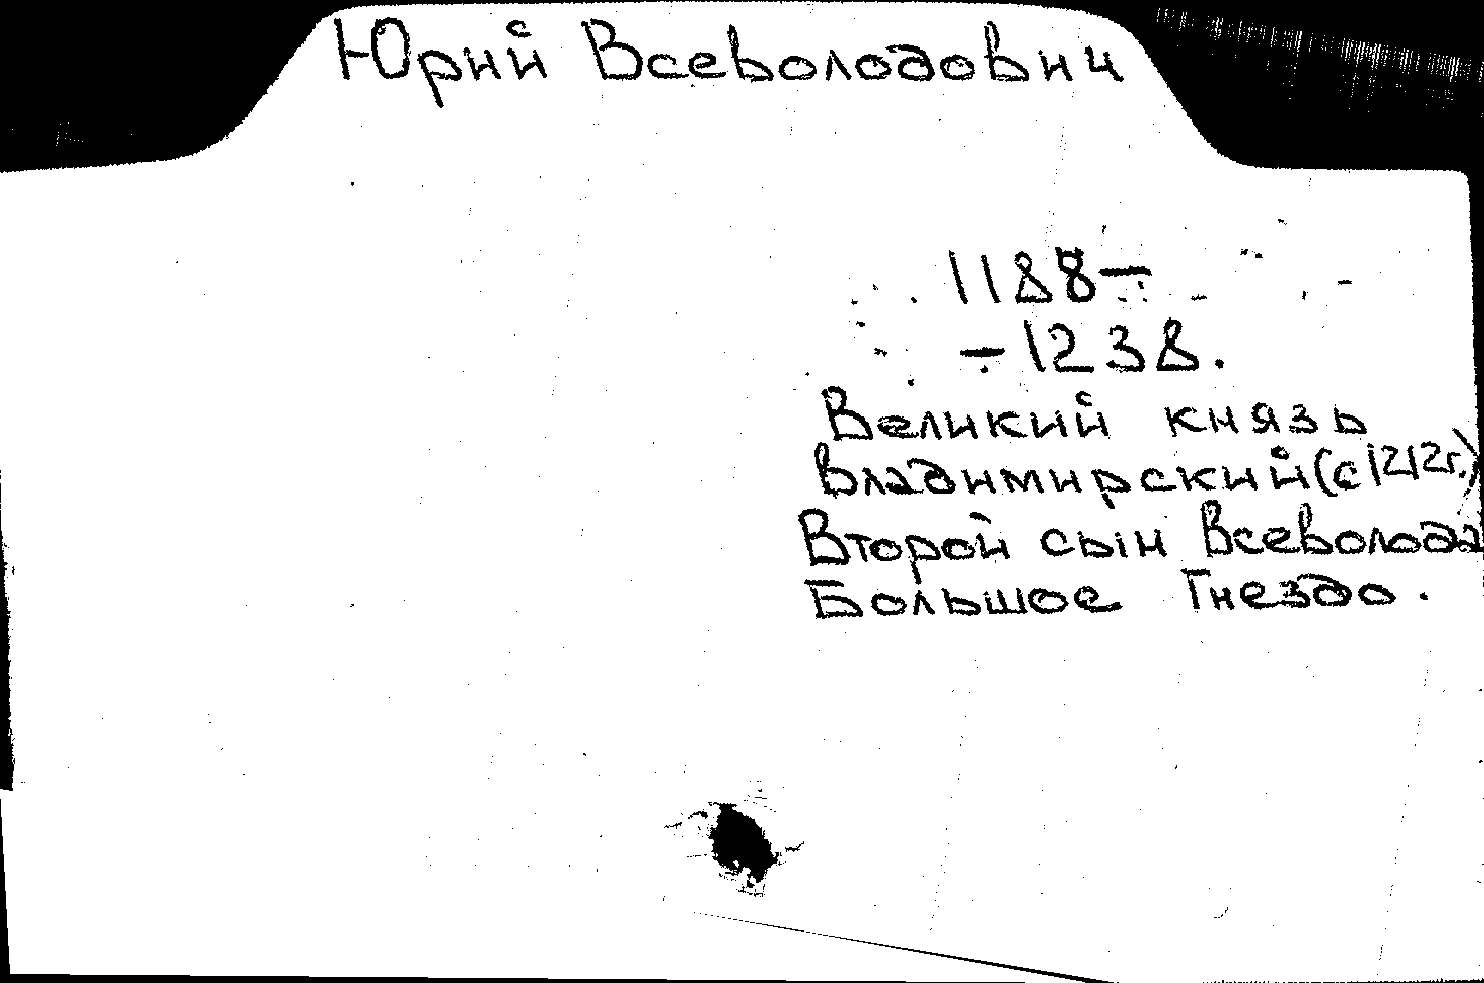 Юрий Всеволодович
1188–
–1238.
Великий князь
Владимирский (с 1212г.)
Второй сын Всеволода
Большое Гнездо.